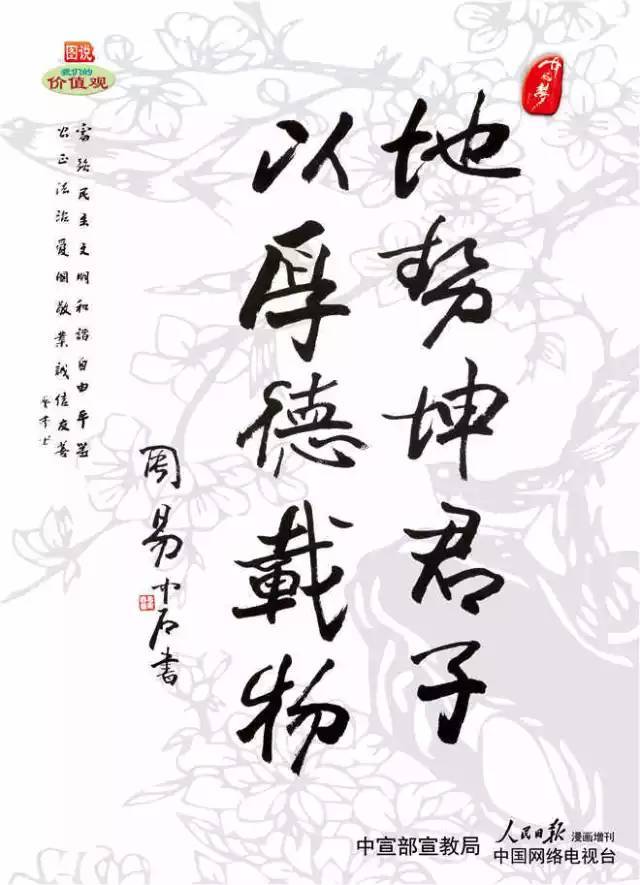 图说
我们的
价值观
中国梦
地势坤君子
以厚德载物
周易中石书
富强民主文明和谐自由平等
公正法治爱国敬业诚信友善
中宣部宣教局
人民日报 漫画增刊
中国网络电视台